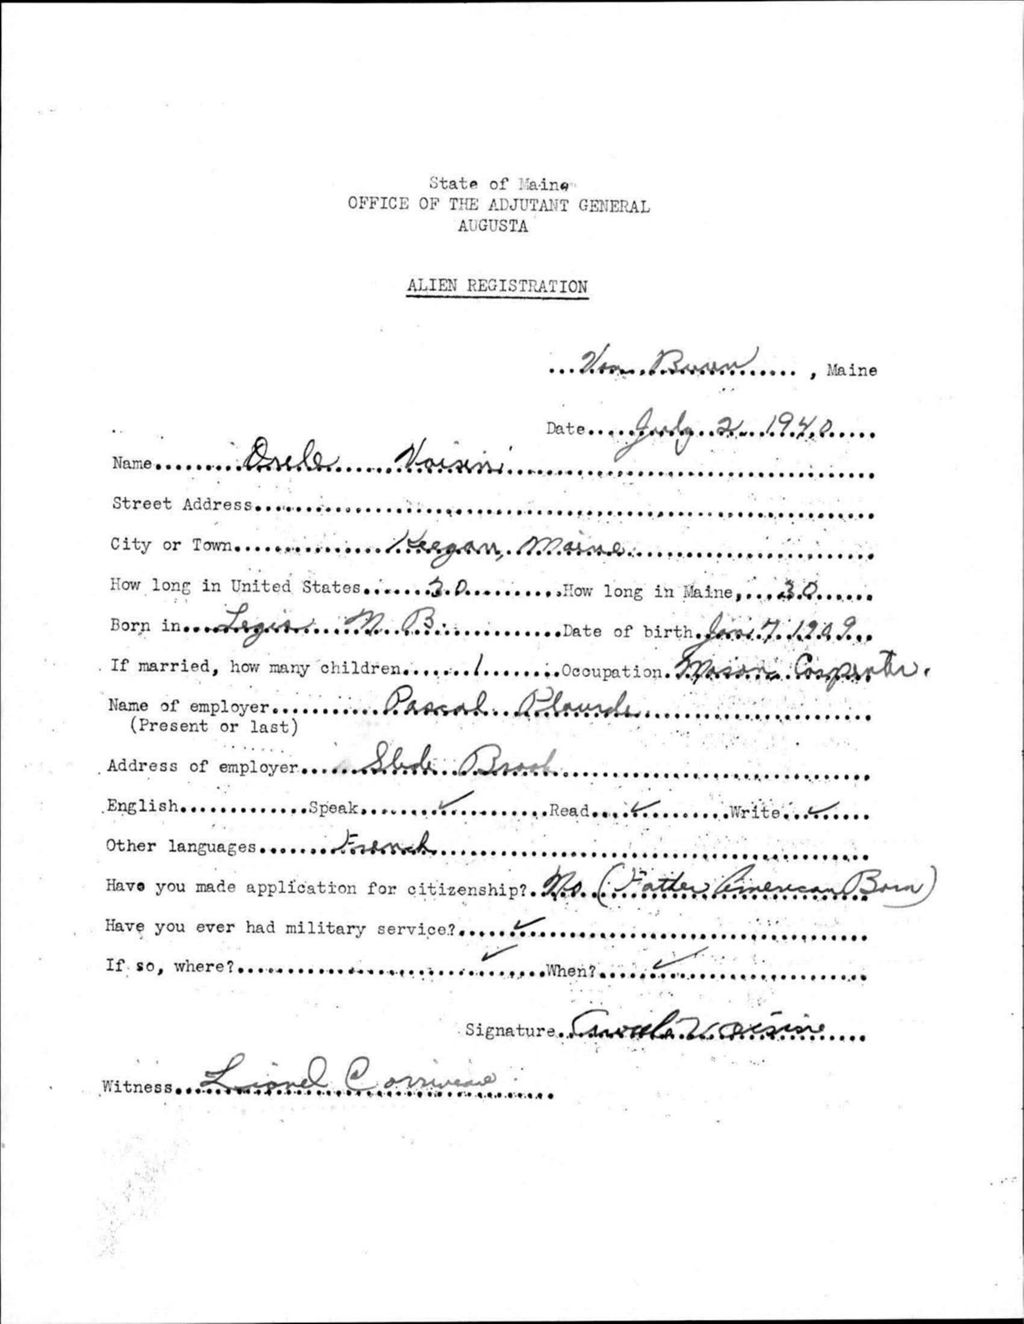 State of Maine
OFFICE OF THE ADJUTANT GENERAL
AUGUSTA
ALIEN REGISTRATION
Van Buren, Maine
Date July 2 1940
Name Voisine
Street Address
City or Town Keegan, Maine
How long in United States 30 How long in Maine, 30
Born in N. B. Date of birth Jan 7, 1909
If married, how many children 1 Occupation Mason Carpenter.
Name of employer Pascal Plourde
(Present or last)
Address of employer
English Speak ✓ Read ✓ Write ✓
Other languages French
Have you made application for citizenship? No (Father American Born)
Have you ever had military service? ✓
If so, where? ✓ When? ✓
Signature Voisine
Witness Lionel Corriveau